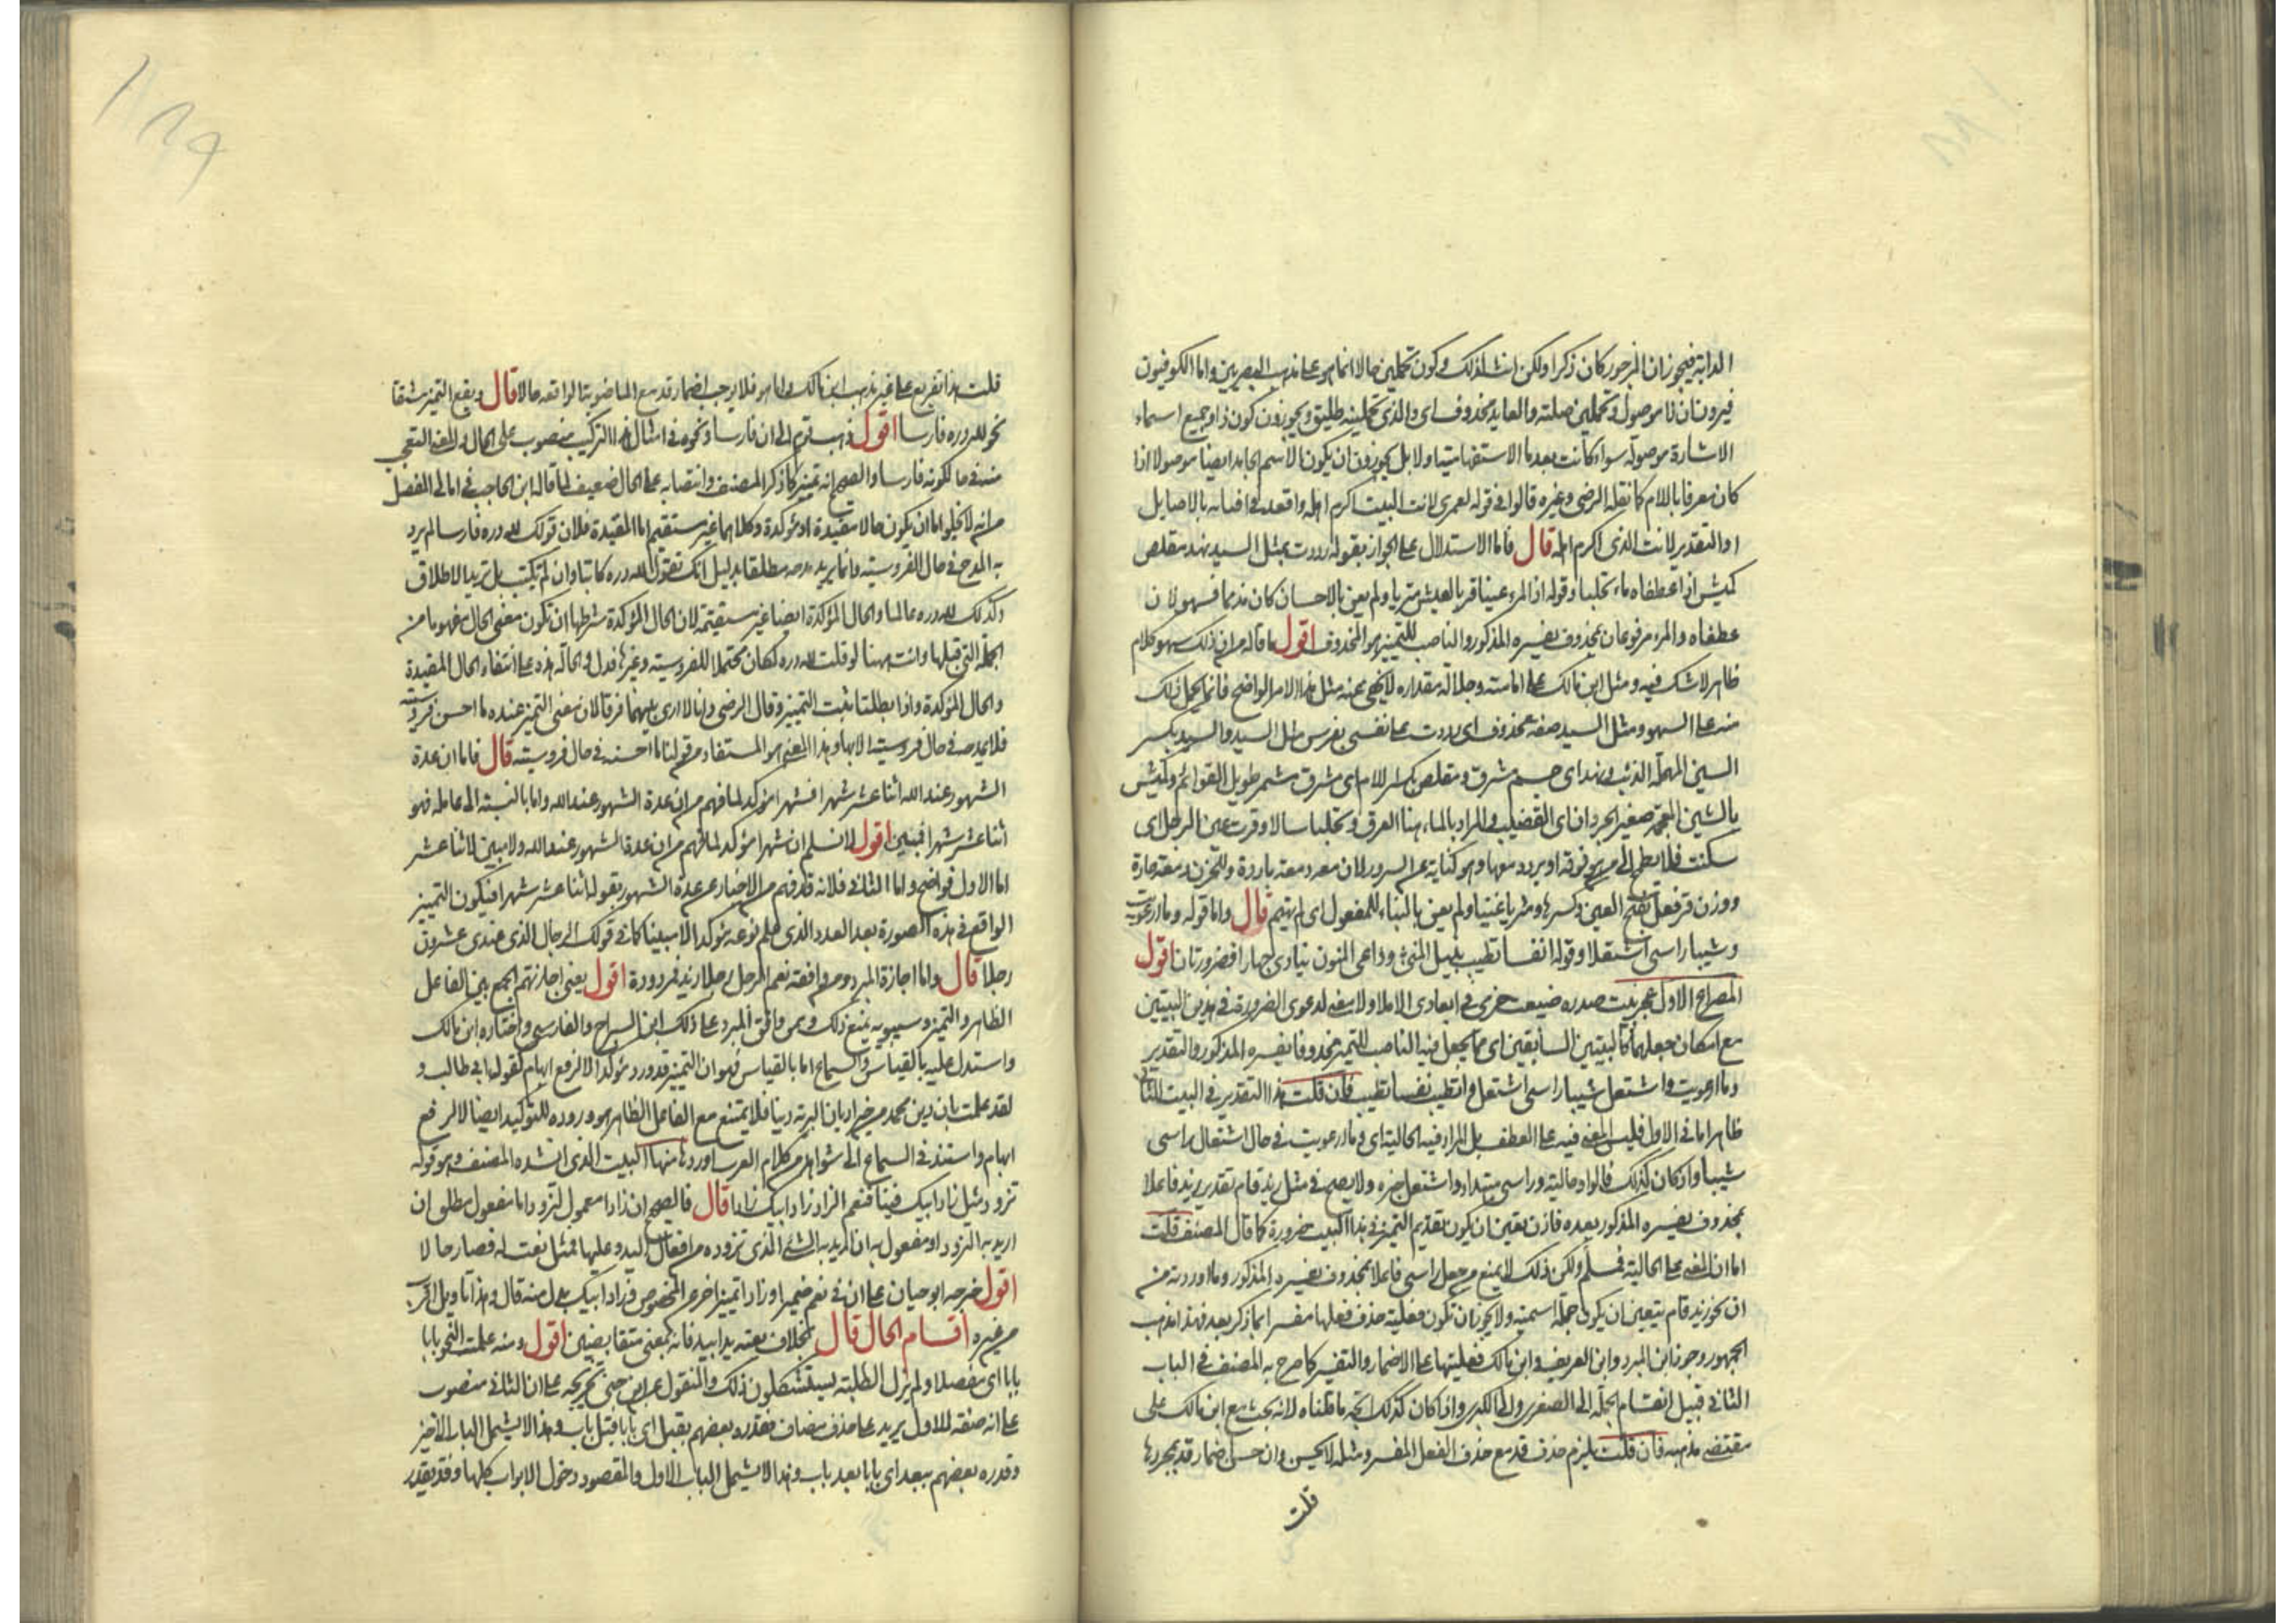 الدابة فيجوز ان المزجور كان ذكرا ولكن انث لذلك وكون تحملين حالا انما هو على مذهب البصريين واما الكوفيون
فيرون ان ذا موصول وتحملين صلته والعايد محذوف اى والذى تحملينه طليق ويجوزون كون ذا وجميع اسماء
الاشارة موصولة سواء كانت بعد ما الاستفهامية اولا بل يجوزون ان يكون الاسم الجامد ايضا موصولا اذا
كان معرفا باللام كما نقله الرضى وغيره قالوا فى قوله لعمرى لانت البيت اكرم اهله واقعد فى افيائه بالاصايل
ا والتقدير لانت الذى اكرم اهله قال فاما الاستدلال على الجواز بقوله رددت بمثل السيد نهد مقلص
كميش اذا عطفاه ماء تحلبا وقوله اذا المرء عينا قر بالعيش مثريا ولم يعن بالاحسان كان مذمما فسهو لان
عطفاه والمرء مرفوعان بمحذوف يفسره المذكور والناصب للتمييز هو المحذوف اقول ما قاله من ان ذلك سهو كلام
ظاهر لا شك فيه ومثل ابن مالك على امامته وجلالة مقداره لا يخفى عنه مثل هذا الامر الواضح فانما يحمل ذلك
منه على السهو ومثل السيد صفة محذوف اى رددت عن نفسى بفرس مثل السيد والسيد بكسر
السين المهملة الذئب ونهد اى جسم مشرف ومقلص بكسر اللام اى مشرف مشمر طويل القوائم وكميش
بالشين المعجمة صغير الجردان اى القضيب والمراد بالماء هنا العرق وتحلبا سالا وقرت عين الرجل اى
سكنت فلا تطمح الى من هو فوقه او بردت دمعها وهو كناية عن السرور لان دمعه دمعة باردة وللحزن دمعة حارة
ووزن قر فعل بفتح العين وكسرها ومثريا غنيا ولم يعن بالبناء للمفعول اى لم يهتم قال واما قوله وما ارعويت
وشيبا راسى اشتعلا وقوله انفسا تطيب بنيل المنى وداعى المنون ينادى جهارا فضرورتان اقول
المصراع الاول عجز بيت صدره ضيعت حزمى فى ابعادى الاملا ولا معنى لدعوى الضرورة فى هذين البيتين
مع امكان جعلهما كالبيتين السابقين اى مما يجعل فيه الناصب للتمييز محذوفا يفسره المذكور والتقدير
وما ارعويت واشتعل شيبا راسى اشتعل واتطيب نفسا تطيب فان قلت هذا التقدير فى البيت الثانى
ظاهر اما فى الاول فليس المعنى فيه على العطف بل المراد فيه الحالية اى وما ارعويت فى حال اشتعال راسى
شيبا واذا كان كذلك فالواو حالية وراسى مبتدا واشتعل خبره ولا يصح فى مثل زيد قام بتقدير زيد فاعلا
بمحذوف يفسره المذكور بعده فاذن يتعين ان يكون تقديم التمييز فى هذا البيت ضرورة كما قال المصنف قلت
اما ان المعنى على الحالية فمسلم ولكن ذلك لا يمنع من جعل راسى فاعلا بمحذوف يفسره المذكور وما اوردته من
ان نحو زيد قام يتعين ان يكون جملة اسمية ولا يجوز ان تكون فعلية حذف فعلها مفسرا بما ذكر بعد فهذا مذهب
الجمهور وجوز ابن المبرد وابن العريف وابن مالك فعليتها على الاضمار والتفسير كما صرح به المصنف فى الباب
الثانى قبيل انقسام الجملة الى الصغرى والى الكبرى واذا كان كذلك اتجه ما قلناه لانه بحث مع ابن مالك على
مقتضى مذهبه فان قلت يلزم حذف قد مع حذف الفعل المفسر ومثله لا يحسن وان حسن اضمار قد بمجردها
قلت
قلت هذا تفريع على غير مذهب ابن مالك واما هو فلا يوجب اضمار قد مع الماضوية الواقعة حالا قال ويقع التمييز مشتقا
نحو لله دره فارسا اقول ذهب قوم الى ان فارسا ونحوه فى امثال هذا التركيب منصوب على الحال والمعنى التعجب
منه فى حال كونه فارسا والصحيح انه تمييز كما ذكر المصنف وانتصابه على الحال ضعيف لما قاله ابن الحاجب فى امالى المفصل
من انه لا يخلوا اما ان يكون حالا مقيدة او مؤكدة وكلاهما غير مستقيم اما المقيدة فلان قولك لله دره فارسا لم يرد
به المدح فى حال الفروسية وانما يريد مدحه مطلقا بدليل انك تقول لله دره كاتبا وان لم يكتب بل تريد الاطلاق
وكذلك لله دره عالما والحال المؤكدة ايضا غير مستقيمة لان الحال المؤكدة شرطها ان تكون معنى الحال مفهوما من
الجملة التى قبلها وانت ههنا لو قلت لله دره لكان محتملا للفروسية وغيرها فدل فى الحالة هذه على انتفاء الحال المقيدة
والحال المؤكدة واذا بطلتا ثبت التمييز وقال الرضى وانا لا ارى بينهما فرقا لان معنى التمييز عنده ما احسن فروسيته
فلا يمدحه فى حال فروسيته الا بها وهذا المعنى هو المستفاد من قولنا ما احسنه فى حال فروسيته قال فاما ان عدة
الشهور عند الله اثنا عشر شهرا فشهرا مؤكد لما فهم من ان عدة الشهور عند الله واما بالنسبة الى عامله فهو
اثنا عشر شهرا فمبين اقول لا نسلم ان شهرا مؤكد لما فهم من ان عدة الشهور عند الله ولا مبين لاثنا عشر
اما الاول فواضح واما الثانى فلانه قد فهم من الاخبار عن عدة الشهور بقوله اثنا عشر شهرا فيكون التمييز
الواقع فى هذه الصورة بعد العدد الذى علم نوعه مؤكدا لا مبينا كما فى قولك الرجال الذى عندى عشرون
رجلا قال واما اجازة المبرد ومن وافقه نعم الرجل رجلا زيد فمردودة اقول يعنى اجازتهم الجمع بين الفاعل
الظاهر والتمييز وسيبويه يمنع ذلك وممن وافق المبرد على ذلك ابن السراج والفارسى واختاره ابن مالك
واستدل عليه بالقياس والسماع اما بالقياس فهو ان التمييز قد ورد مؤكدا لا لرفع ابهام كقول ابى طالب و
لقد علمت بان دين محمد من خير اديان البرية دينا فلا يمتنع مع الفاعل الظاهر هو وروده للتوكيد ايضا لا لرفع
ابهام واستند فى السماع الى شواهد من كلام العرب اوردها منها البيت الذى انشده المصنف وهو قوله
تزود مثل زاد ابيك فينا فنعم الزاد زاد ابيك زادا قال فالصحيح ان زادا معمول لتزود اما مفعول مطلق ان
اريد به التزود او مفعول به ان اريد به الشئ الذى تزوده من افعال البر وعليهما فمثل نعت له فصار حالا
اقول خرجه ابو حيان على ان فى نعم ضميرا وزادا تمييز اخر عن المخصوص وزاد ابيك بدل منه قال وهذا تاويل اقرب
من غيره اقسام الحال قال بخلاف بعته يدا بيد فانه بمعنى متقابضين اقول ومنه علمت النحو بابا
بابا اى مفصلا ولم يزل الطلبة يستشكلون ذلك والمنقول عن ابن جنى تخريجه على ان الثانى منصوب
على انه صفة للاول يريد على حذف مضاف فقدره بعضهم بقبل اى بابا قبل باب وهذا لا يشمل الباب الاخير
وقدره بعضهم ببعد اى بابا بعد باب وهذا لا يشمل الباب الاول والمقصود دخول الابواب كلها وقد يقدر